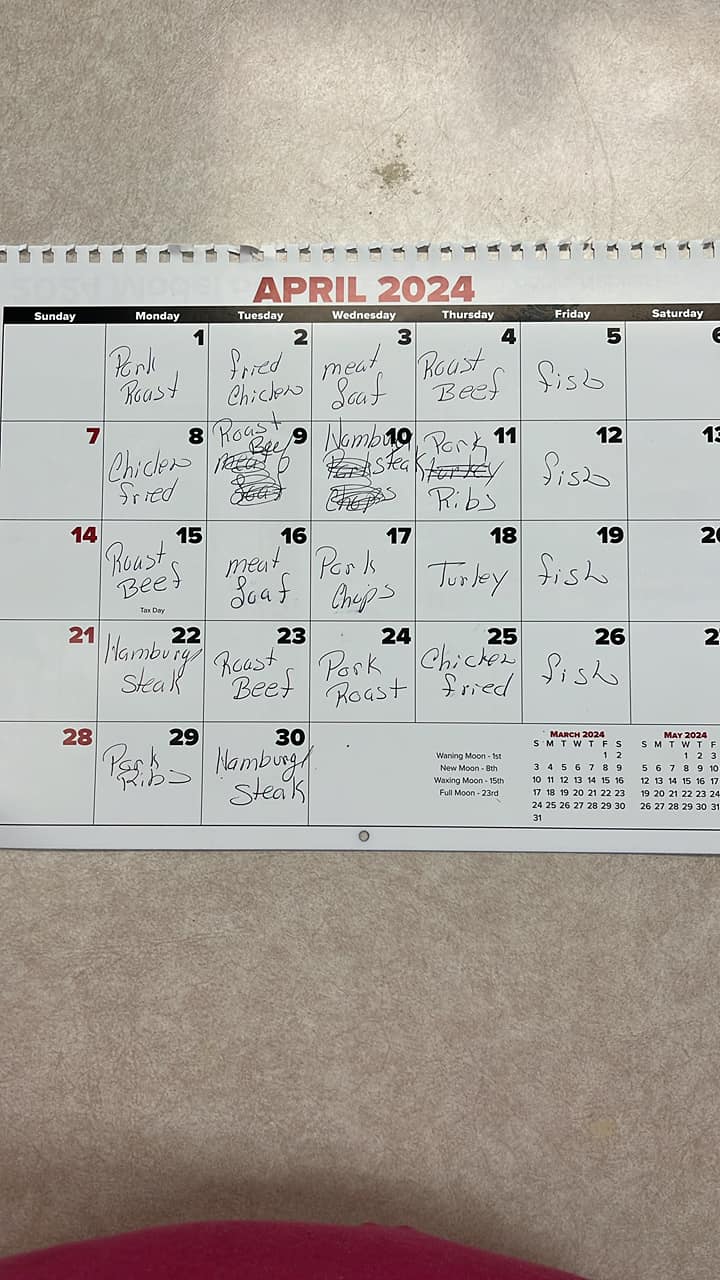 APRIL 2024
Sunday Monday Tuesday Wednesday Thursday Friday Saturday
1 2 3 4 5 6
Pork fried meat Roast fish
Roast Chicken Loaf Beef
7 8 9 10 11 12 13
Roast Hamburg Pork
Chicken Beef Steak Turkey fish
fried meat Pork Ribs
Loaf Chops
14 15 16 17 18 19 20
Roast meat Pork Turkey fish
Beef Loaf Chops
Tax Day
21 22 23 24 25 26 27
Hamburg Roast Pork Chicken fish
Steak Beef Roast fried
28 29 30
Pork Hamburg
Ribs Steak
Waning Moon - 1st
New Moon - 8th
Waxing Moon - 15th
Full Moon - 23rd
MARCH 2024
S M T W T F S
1 2
3 4 5 6 7 8 9
10 11 12 13 14 15 16
17 18 19 20 21 22 23
24 25 26 27 28 29 30
31
MAY 2024
S M T W T F
1 2 3
5 6 7 8 9 10
12 13 14 15 16 17
19 20 21 22 23 24
26 27 28 29 30 31